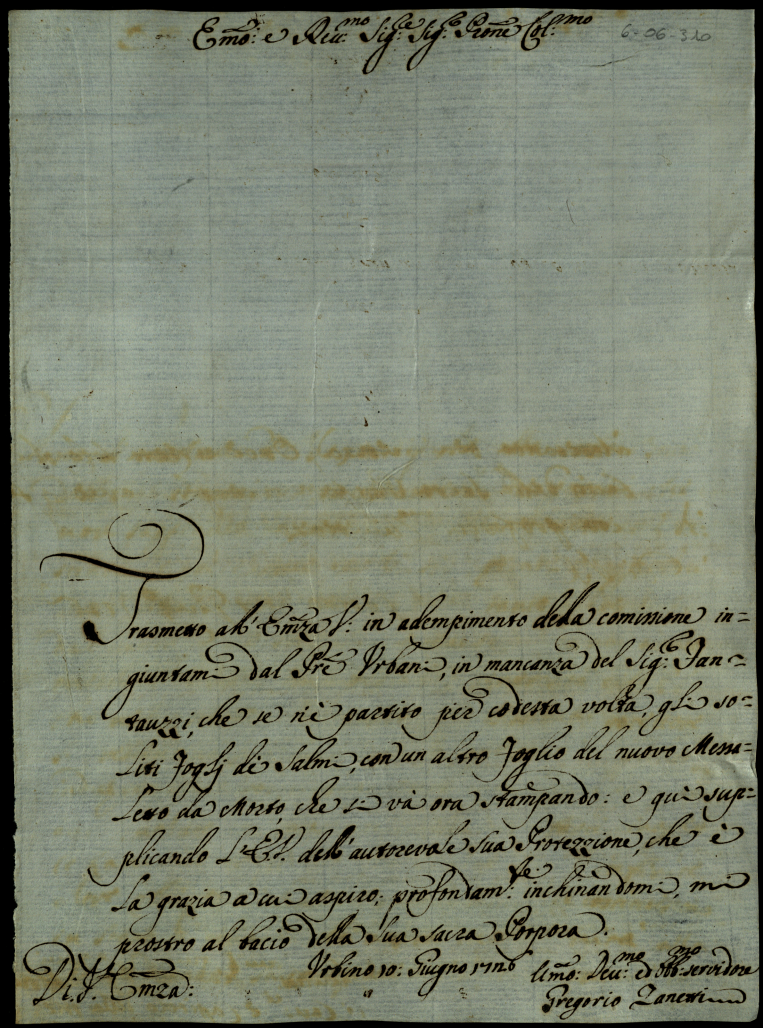 Emo: e Reu:mo Sig:re Sig:re Prone Col:mo
6-06-310
Trasmetto all'Emza V: in adempimento della comissione in=
giuntami dal Pre Urbani, in mancanza del Sig:re Fan=
tauzzi, che se n'è partito per codesta volta, gli so=
liti foglj dè Salmi, con un altro foglio del nuovo Messa=
letto da Morto, che si và ora stampando: e quì sup=
plicando L'E.V. dell'autorevole sua Protezzione, che è
la grazia a cui aspiro; profondam:te inchinandomi, mi
prostro al bacio della sua sacra Porpora.
Di V. Emza:
Urbino 10: Giugno
Umo: Deu:mo ed obb:mo servidore
Gregorio Zanetti